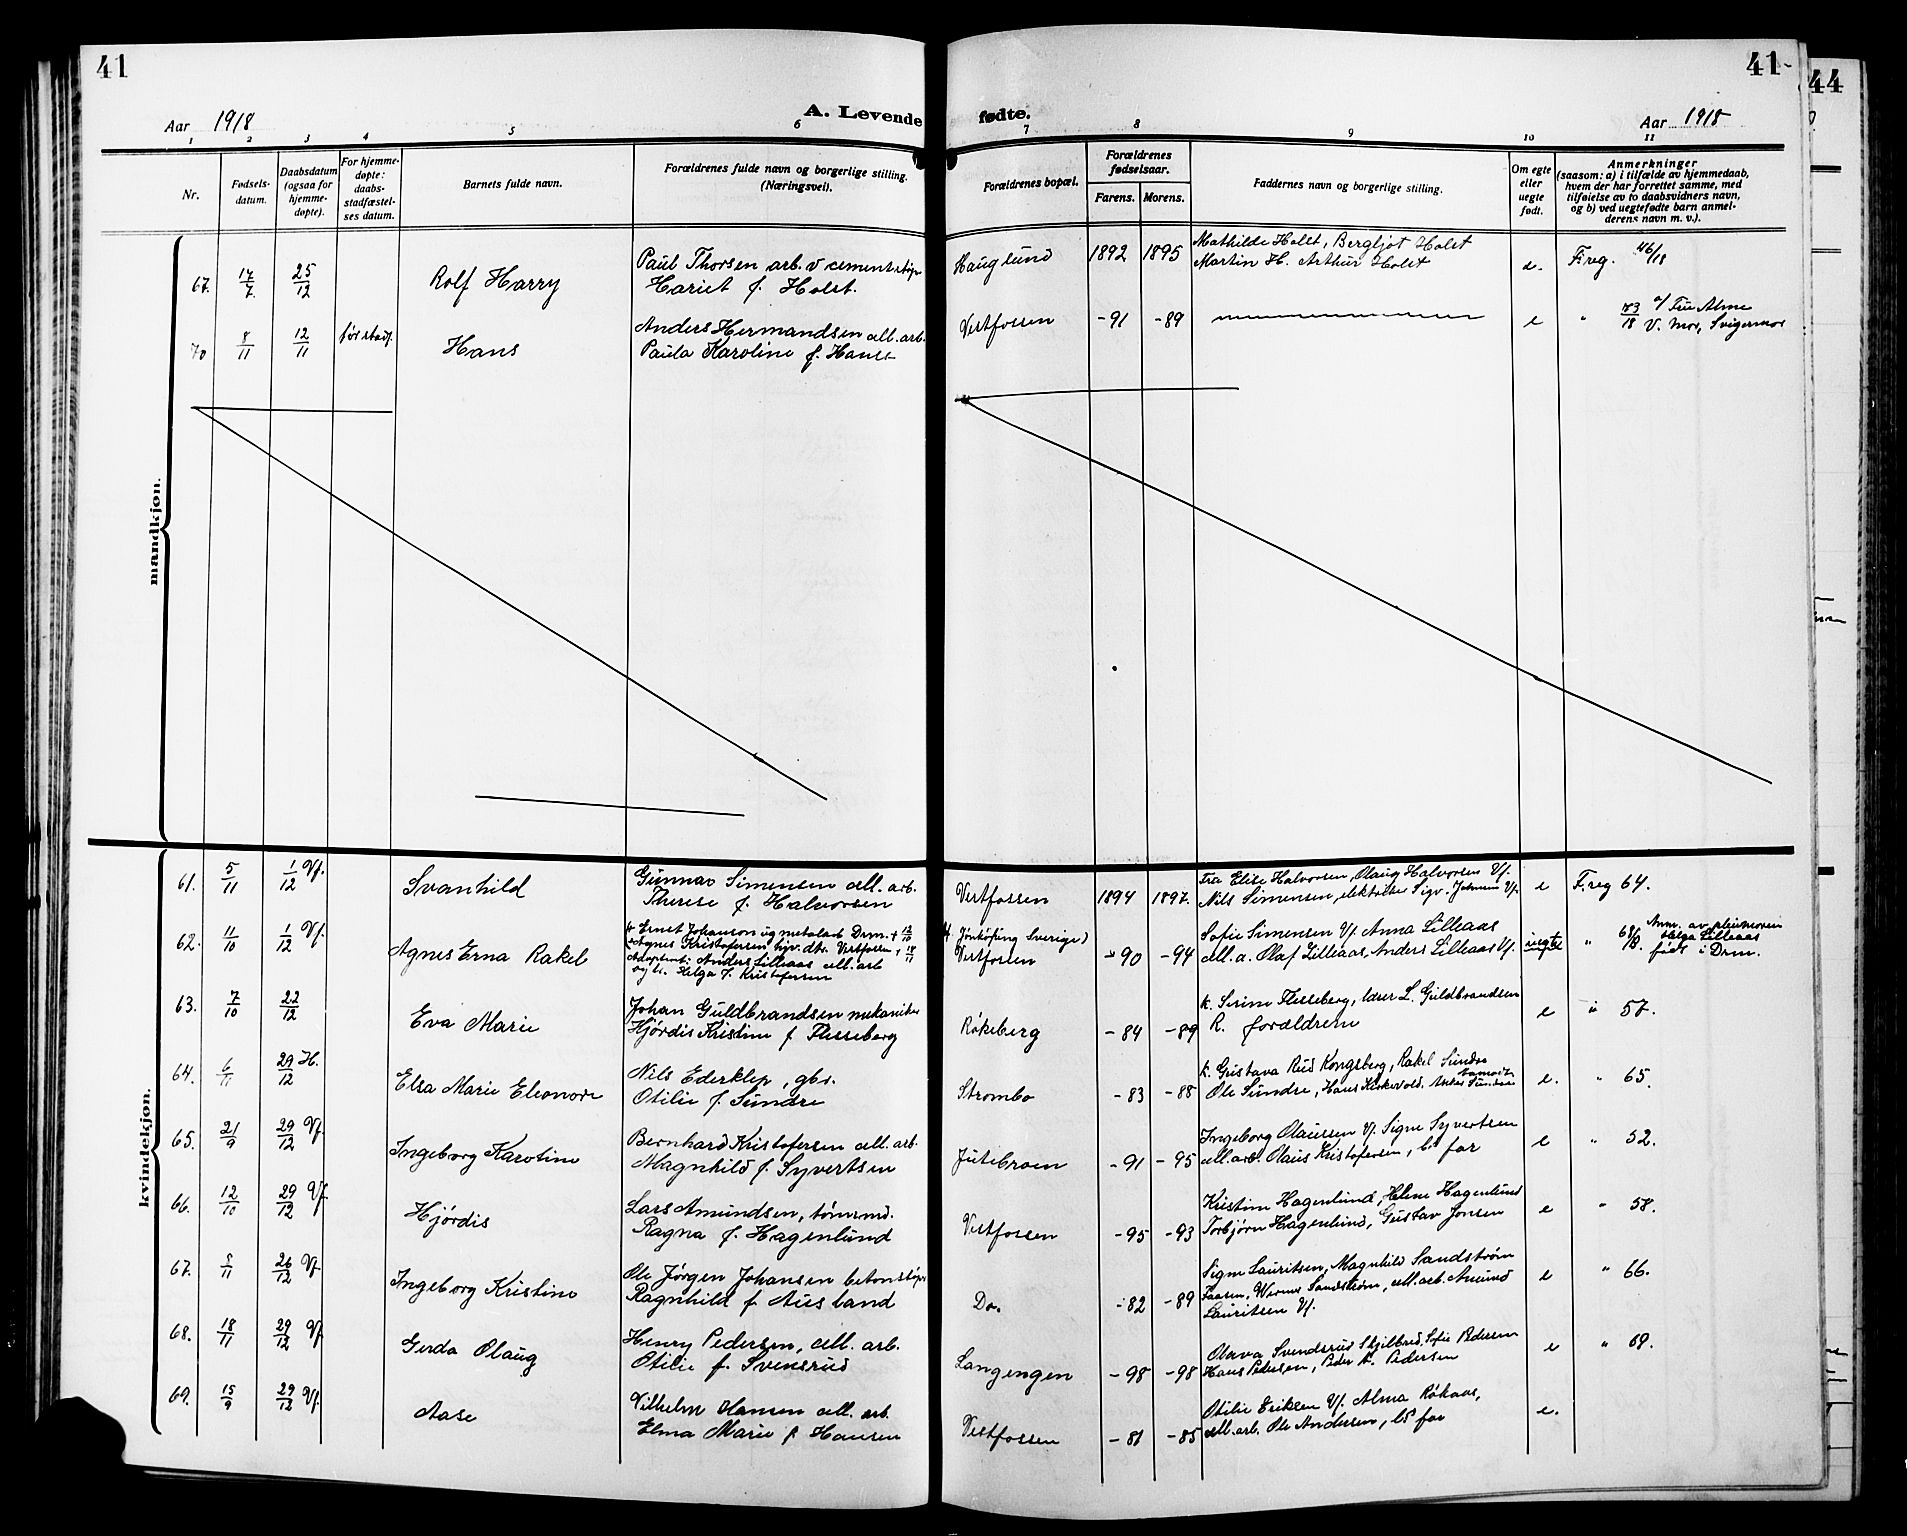 41
41
44
Aar 1918
A. Levende fødte.
Aar 1918
1 2 3 4 5 6 7 8 9 10 11
Nr.
Fødsels-
datum.
Daabsdatum
(ogsaa for
hjemme-
døpte).
For hjemme-
døpte:
daabs-
stadfæstel-
ses datum.
Barnets fulde navn.
Forældrenes fulde navn og borgerlige stilling.
(Næringsvei).
Forældrenes bopæl.
Forældrenes
fødselsaar.
Farens. Morens.
Faddernes navn og borgerlige stilling.
Om egte
eller
uegte
født.
Anmerkninger
(saasom: a) i tilfælde av hjemmedaab,
hvem der har forrettet samme, med
tilføielse av to daabsvidners navn,
og b) ved uegtefødte barn anmel-
derens navn m. v.).
mandkjøn.
67. 17/7. 25/12 Rolf Harry
Paul Thorsen arb. v cementstøp
Hariet f. Holst.
Hauglund 1892 1895
Mathilde Holst, Bergljot Holst
Martin H. Arthur Holst
e. F. reg. 46/18
70 8/11 12/11 før stadf. Hans
Anders Hermandsen cell. arb.
Paula Karoline f. Hans
Vestfossen -91 -89 e " 73/18 v/ Fru Alme
V. Mor, Svigermor
kvindekjøn.
61. 5/11 1/12 Vf. Svanhild
Gunnar Simensen cell. arb.
Therese f. Halvorsen
Vestfossen 1894 1897.
Fru Elise Halvorsen, Olaug Halvorsen Vf.
Nils Simensen, elektriker Sigv. Vf.
e F. reg 64.
62. 11/10 1/12 Vf. Agnes Erna Rakel
Ernst Johanson ug metalarb Drm. + 12/10
Agnes Kristofersen hjv. dtr. Vestfossen + 18/11
Adoptivf: Anders Lilleaas cell. arb
og h. Helga f. Kristofersen
Jönköping Sverige)
Vestfossen -90 -94
Sofie Simensen Vf. Anna Lilleaas
cell. a. Olaf Lilleaas, Anders Lilleaas Vf.
uegte " 68/18. Anm. av pleiemoren
Helga Lilleaas
født i Drm.
63. 7/10 22/12 Eva Marie
Johan Guldbrandsen mekaniker
Hjørdis Kristine f Flesseberg
Røkeberg -84 -89
k. Serine Flesseberg, lærer L. Guldbrandsen
R. forældrene
e " 57.
64. 6/11 29/12 H. Elsa Marie Eleonore
Nils Ederklep, gbr.
Otilie f. Sundre
Strombo -83 -88
k. Gustava Rud Kongsberg, Rakel Sundre
Ole Sundre, Hans Kirkevold, Sundre
e. " 65.
65. 21/9 29/12 Vf. Ingeborg Karoline
Bernhard Kristofersen cell. arb.
Magnhild f. Syvertsen
Jutebroen -91 -95
Ingeborg Olaussen Vf. Signe Syvertsen
cell. arb. Olaus Kristofersen, bs far
e " 52.
66. 12/10 29/12 Vf Hjørdis
Lars Amundsen, tømmerm.
Ragna f. Hagenlund
Vestfossen -95 -93
Kristine Hagenlund, Helene Hagenlund
Torbjørn Hagenlund, Gustav Jonsen
e " 58.
67. 5/11 26/12 Vf Ingeborg Kristine
Ole Jørgen Johansen betonstøper
Ragnhild f. Ausland
Do. -82 -89
Signe Lauritsen, Magnhild Sandstrøm
Faasen, Werner Sandstrøm, cell. arb. Amund
Lauritsen Vf.
e " 66.
68. 18/11 29/12 Vf Gerda Olaug
Henry Pedersen, cell. arb.
Otilie f. Svensrud
Langengen -98 -98
Olava Svendsrud Skjelbred, Sofie Pedersen
Hans Pedersen, Peder K. Pedersen
e " 69.
69. 15/9 29/12 Vf. Aase
Vilhelm Hansen cell. arb.
Elma Marie f Hansen
Vestfossen -81 -85
Otilie Eriksen Vf. Alma Røkaas,
cell. arb. Ole Andersen, bs far
e.